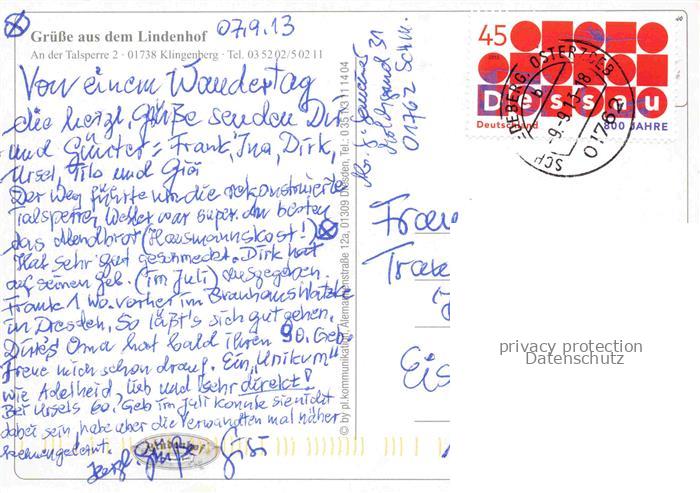 07.9.13
Grüße aus dem Lindenhof
An der Talsperre 2 · 01738 Klingenberg · Tel. 03 52 02/5 02 11
Von einem Wandertag
die herzl. Grüße senden Dir
und Günter = Frank, Ina, Dirk,
Ursel, Tilo und Gisi
Der Weg führte um die rekonstruierte
Talsperre, Wetter war super am besten
das Abendbrot (Hausmannskost!)
Hat sehr gut geschmeckt. Dirk hat
auf seinen geb. (im Juli) ausgegeben.
Frank 1 Wo. vorher im Brauhaus
in Dresden. So läßt's sich gut gehen.
Dirks Oma hat bald ihren 90. Geb.
Freue mich schon drauf. Ein „Unikum"
wie Adelheid, lieb und sehr direkt!
Bei Ursels 60. Geb im Juli konnte sie nicht
dabei sein, habe aber die Verwandten mal näher
kennengelernt.
herzl. Grüße Gisi
Lindenhof
© by pl.kommunikation, Alemannenstraße 12a, 01309 Dresden, Tel.: 0351/3 11 14 04
31
01762
45
Dessau
Deutschland
800 JAHRE
-9.9.13-18
01762
Frau
Eis
privacy protection
Datenschutz